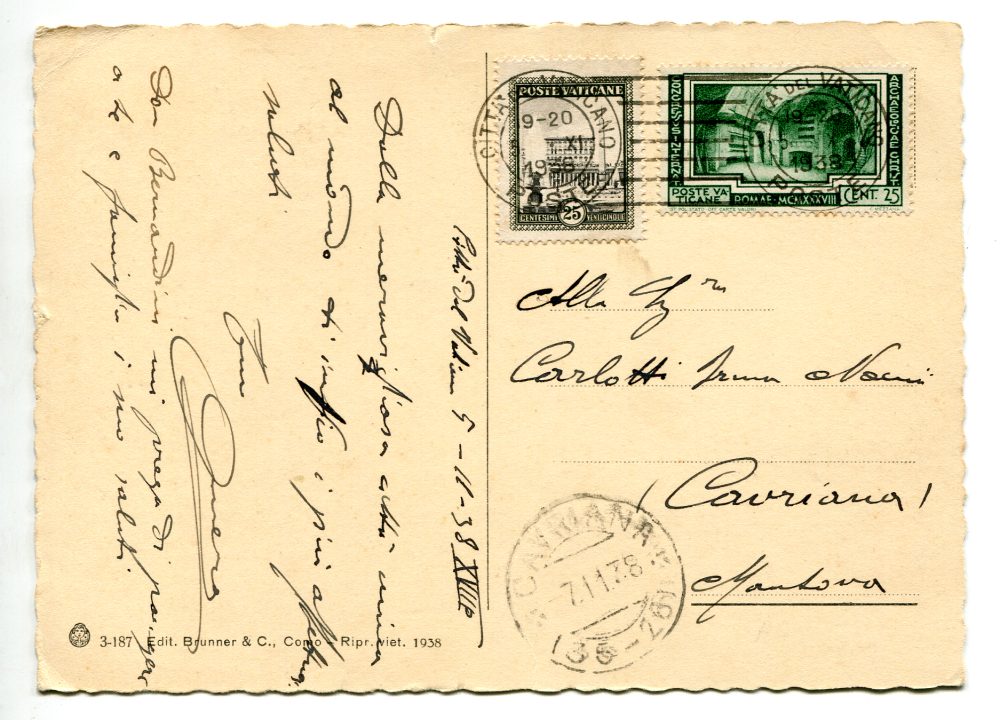 Città del Vaticano 5-11-38 XVII°
Dalla meravigliosa città unica
al mondo ti invio i più affettuosi
saluti
Tuo
Don Bernardini mi prega di porgere
a te e famiglia i suoi saluti.
POSTE VATICANE
CENTESIMI 25 VENTICINQUE
CITTÀ DEL VATICANO
19-20
XI
1938
POSTE
CONGRESSUS INTERNAT.
ARCHAEOLOGIAE CHRIST.
POSTE VATICANE
ROMAE·MCMXXXVIII
CENT. 25
IST. POL. STATO OFF. CARTE VALORI
C. MEZZANA
CITTÀ DEL VATICANO
19-20
1938
POSTE
Alla
Carlotti Irma
(Cavriana)
Mantova
CAVRIANA
7.11.38
3-187 Edit. Brunner & C., Como - Ripr. viet. 1938